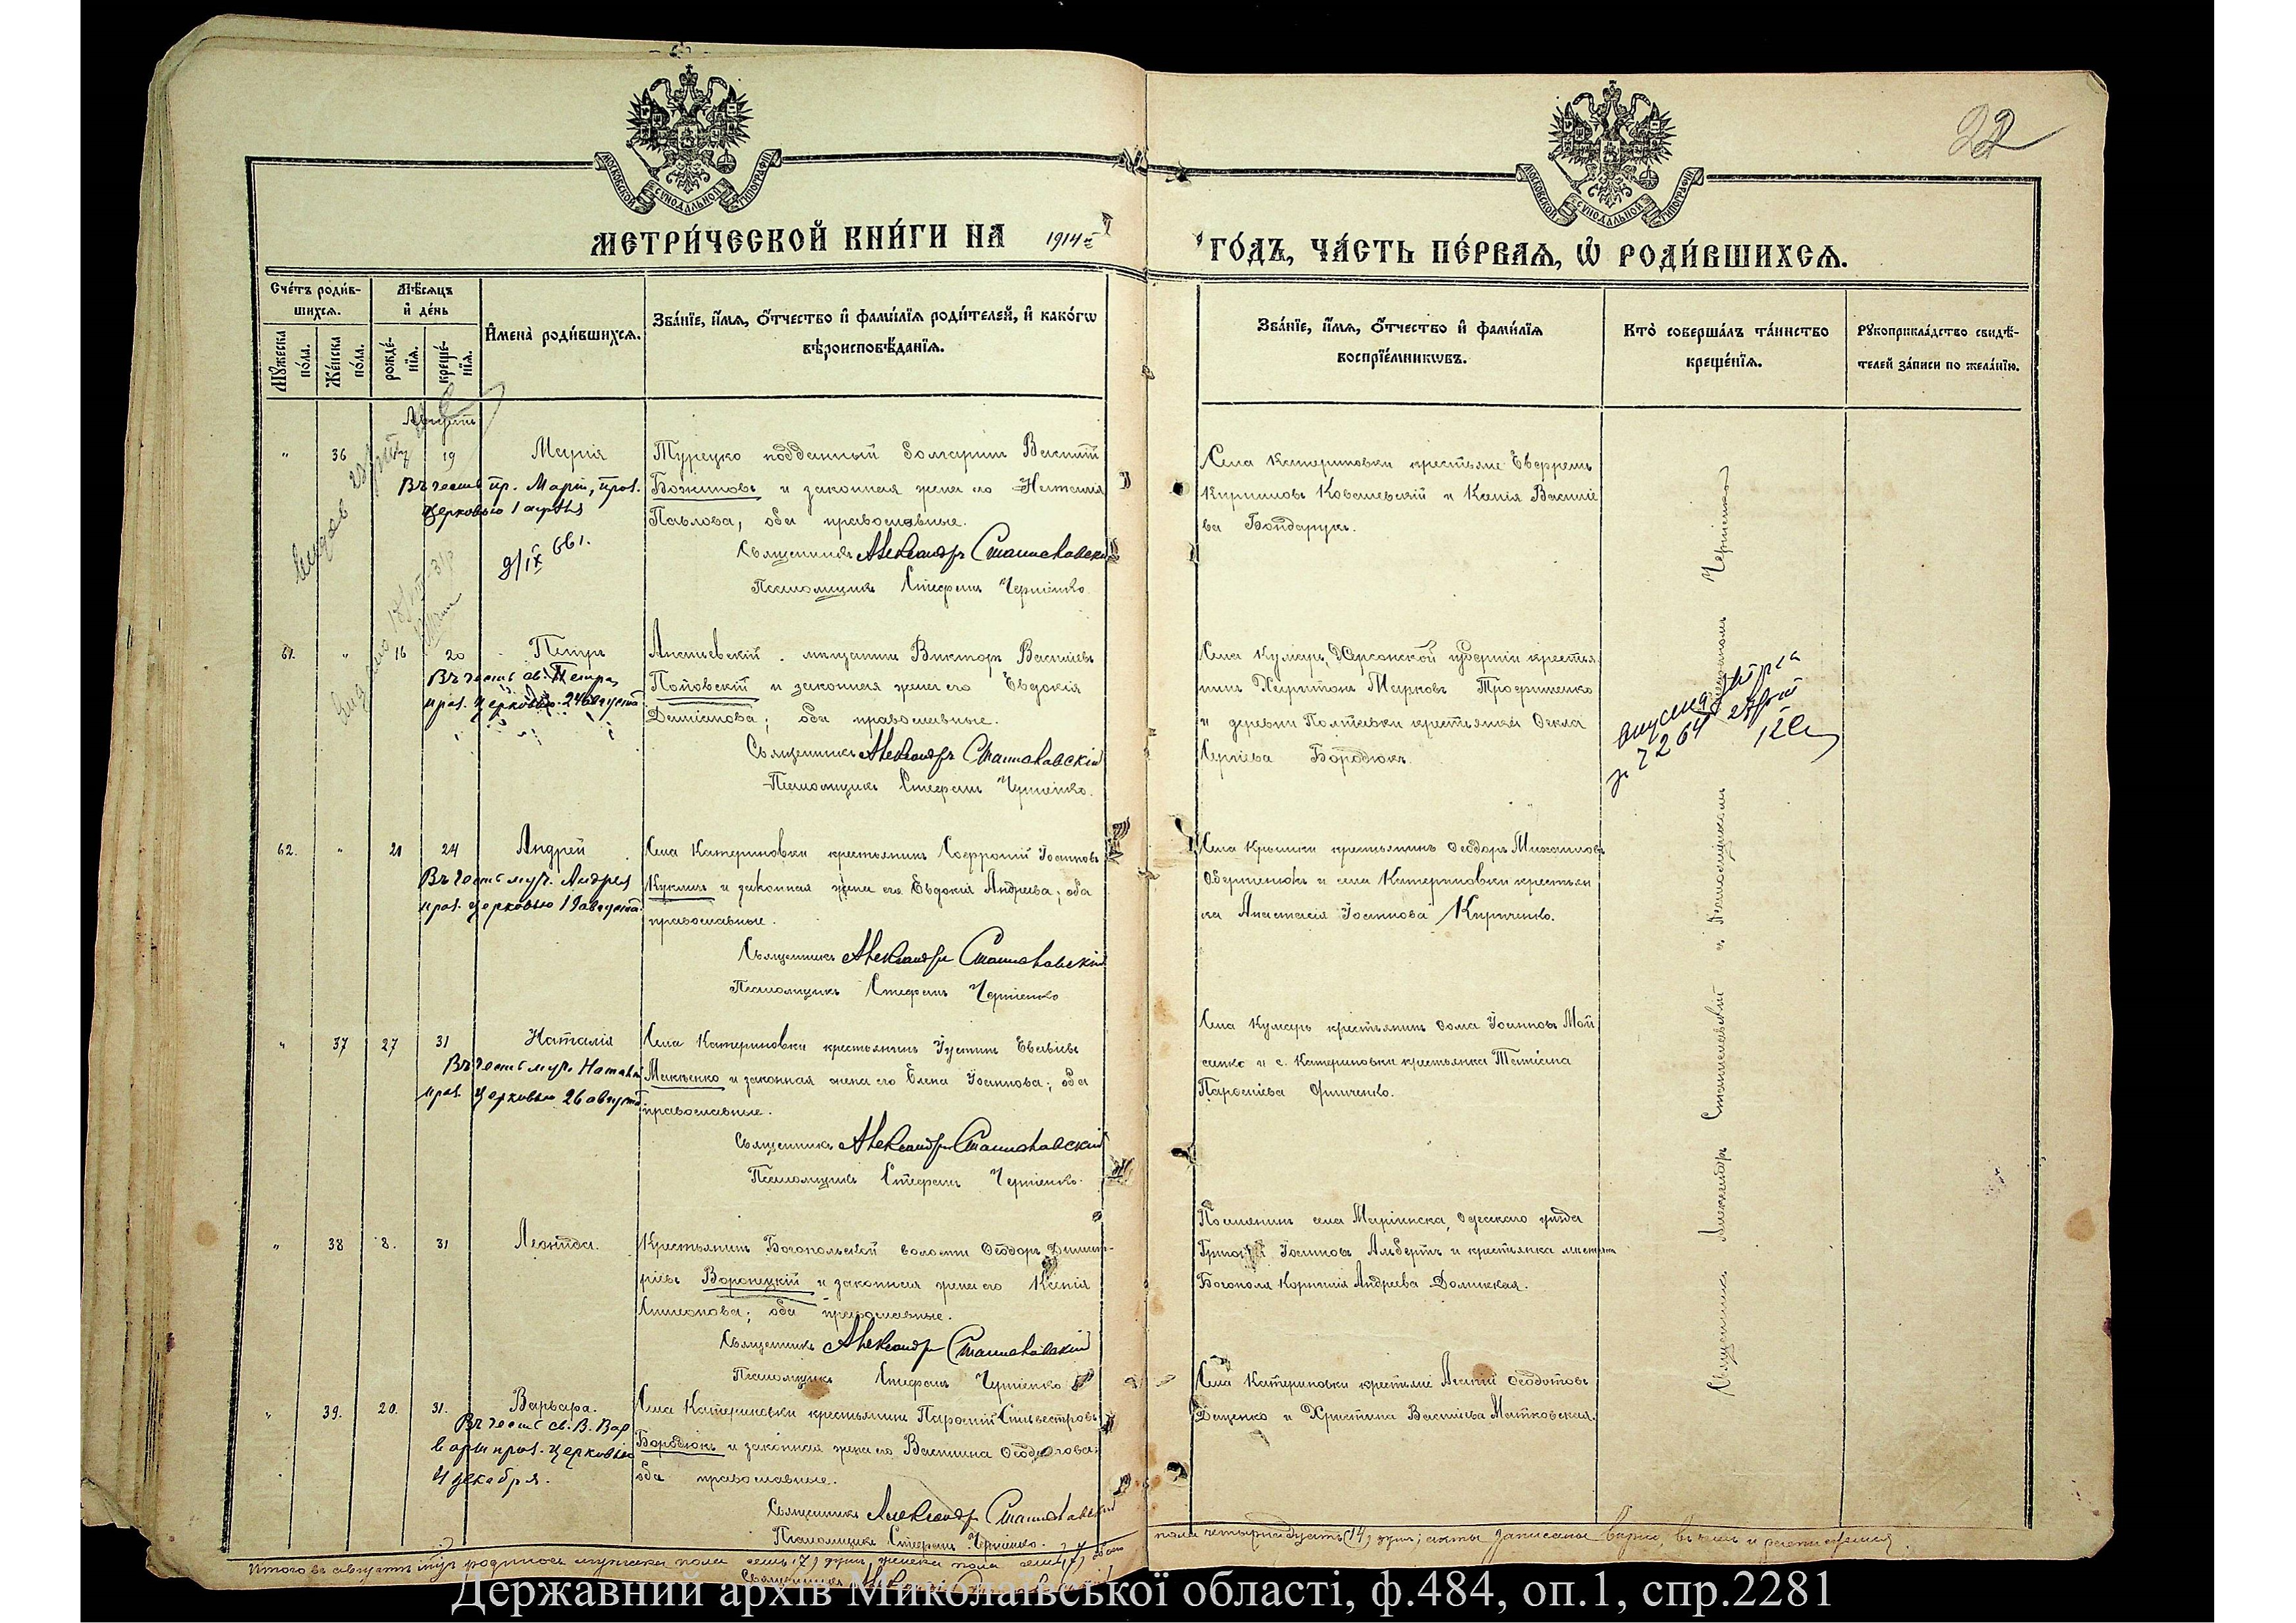 22
МОСКОВСКОЙ СУНОДАЛЬНОЙ ТИПОГРАФІИ
МОСКОВСКОЙ СУНОДАЛЬНОЙ ТИПОГРАФІИ
МЕТРИ́ЧЕСКОЙ КНИ́ГИ НА 1914 й
ГО́ДЪ, ЧА́СТЬ ПЕ́РВАѦ, Ѡ҆ РОДИ́ВШИХСѦ.
Сче́тъ роди́в-
шихсѧ.
Мѣ́сѧцъ
и҆ де́нь
Мꙋ́жеска по́ла.
Же́нска по́ла.
рожде́-нїѧ.
креще́-нїѧ.
И҆мена̀ роди́вшихсѧ.
Зва́нїе, и҆́мѧ, ѻ҆́тчество и҆ фами́лїѧ роди́телей, и҆ како́гѡ
вѣроисповѣ́данїѧ.
Зва́нїе, и҆́мѧ, ѻ҆́тчество и҆ фами́лїѧ
воспрїе́мникѡвъ.
Кто̀ соверша́лъ та́инство
креще́нїѧ.
Рꙋкоприкла́дство свидѣ́-
телей за́писи по жела́нїю.
Августъ
" 36 19 Марія
Въ честь пр. Маріи, праз.
церковью 1 апрѣля
Турецко подданный болгаринъ Василій
Божиновъ и законная жена его Наталія
Павлова, оба православные.
Священникъ Александръ Станиславскій
Псаломщикъ Стефанъ Черненко.
9/IX 66 г.
Села Катериновки крестьяне Евфремъ
Кирилловъ Ковалевскій и Ксенія Василіе
ва Бондарукъ.
61. " 16 20 Петръ
Въ честь св. Петра,
праз. церковью 24 августа
Ананьевскій мещанинъ Викторъ Васильевъ
Поповскій и законная жена его Евдокія
Даміанова; оба православные.
Священникъ Александръ Станиславскій
Псаломщикъ Стефанъ Черненко.
Села Кумары, Херсонской губерніи крестья
нинъ Харитонъ Марковъ Трофименко
и деревни Полтавки крестьянка Фекла
Сергіева Бородюкъ.
62. " 21 24 Андрей
Въ честь муч. Андрея
праз. церковью 19 августа.
Села Катериновки крестьянинъ Софроній Іоанновъ
Куклинъ и законная жена его Евдокія Андреева; оба
православные.
Священникъ Александръ Станиславскій
Псаломщикъ Стефанъ Черненко
Села Крымки крестьянинъ Ѳеодоръ Михаиловъ
и села Катериновки крестьян
ка Анастасія Іоаннова Кириченко.
" 37 27 31 Наталія
Въ честь муч. Наталіи
праз. церковью 26 августа
Села Катериновки крестьянинъ Іустинъ Евсевіевъ
Макѣенко и законная жена его Елена Іоаннова; оба
православные.
Священникъ Александръ Станиславскій
Псаломщикъ Стефанъ Черненко.
Села Кумары крестьянинъ Ѳома Іоанновъ Мой
сенко и с. Катериновки крестьянка Татіана
Парѳеніева
" 38 8. 31 Леонида.
Крестьянинъ Богопольской волости Ѳеодоръ Димит-
ріевъ Воронецкій и законная жена его Ксенія
Симеонова; оба православные.
Священникъ Александръ Станиславскій
Псаломщикъ Стефанъ Черненко
Поселянинъ села Маріинска, Одесскаго уезда
Григорій Іоанновъ Альбертъ и крестьянка местечка
Богополя Корнилія Андреева Долинская.
" 39. 20. 31. Варвара.
Въ честь св. В. Вар
вары праз. церковью
4 декабря.
Села Катериновки крестьянинъ Парѳеній Сильвестровъ
Бородюкъ и законная жена его Василиса Ѳеодотова;
оба православные.
Священникъ Александръ Станиславскій
Псаломщикъ Стефанъ Черненко.
Села Катериновки крестьяне Ѳеодотовъ
Деценко и Христина Васильева Матковская.
Священникъ Александръ Станиславскій и Псаломщикъ Стефанъ Черненко
Итого въ августѣ м-цѣ родилось мужеска пола семь (7) душ, женска пола семь (7), обоего
пола четырнадцать (14) душ; акты записаны верно, въ чемъ и расписуемся.
Державний архів Миколаївської області, ф.484, оп.1, спр.2281